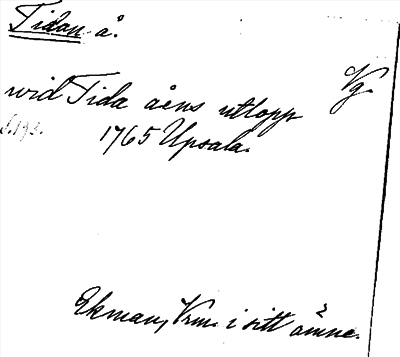 Tidan å.
Vg.
wid Tida åens utlopp
s. 193.
1765 Upsala.
Ekman, Vrm. i sitt ämne.